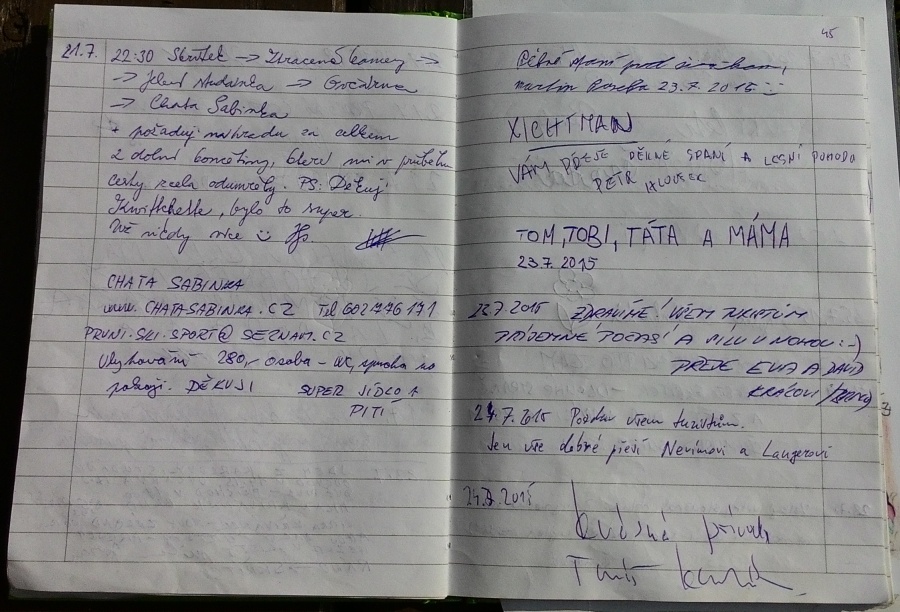 21.7. 22:30 Skřítek → Ztracené kameny →
→ Jelení → 
→ Chata Sabinka
+ požaduji náhradu za celkem
2 dolní končetiny, které mi v průběhu
cesty zcela odumřely. PS: Děkuji
, bylo to super.
Už nikdy více
CHATA SABINKA
www.CHATASABINKA.CZ Tel 602776171
PRVNI.SKI.SPORT@SEZNAM.CZ
Ubytování 280,- osoba - WC, sprcha na
pokoji. DĚKUJI SUPER JÍDLO +
PITÍ
45
Martin 23.7.2015
XICHTMAN
VÁM PŘEJE PĚKNÉ SPANÍ A LESNÍ POHODU
PETR
TOM, TOBI, TÁTA A MÁMA
23.7.2015
23.7.2015 ZDRAVÍME VŠEM TURISTŮM
PŘÍJEMNÉ POČASÍ A SÍLU V NOHOU :-)
PŘEJE EVA A DAVID
KRÁČOVI
24.7.2015 Pozdrav všem turistům.
Jen vše dobré přejí Nevímovi a Langerovi
24.7.2015